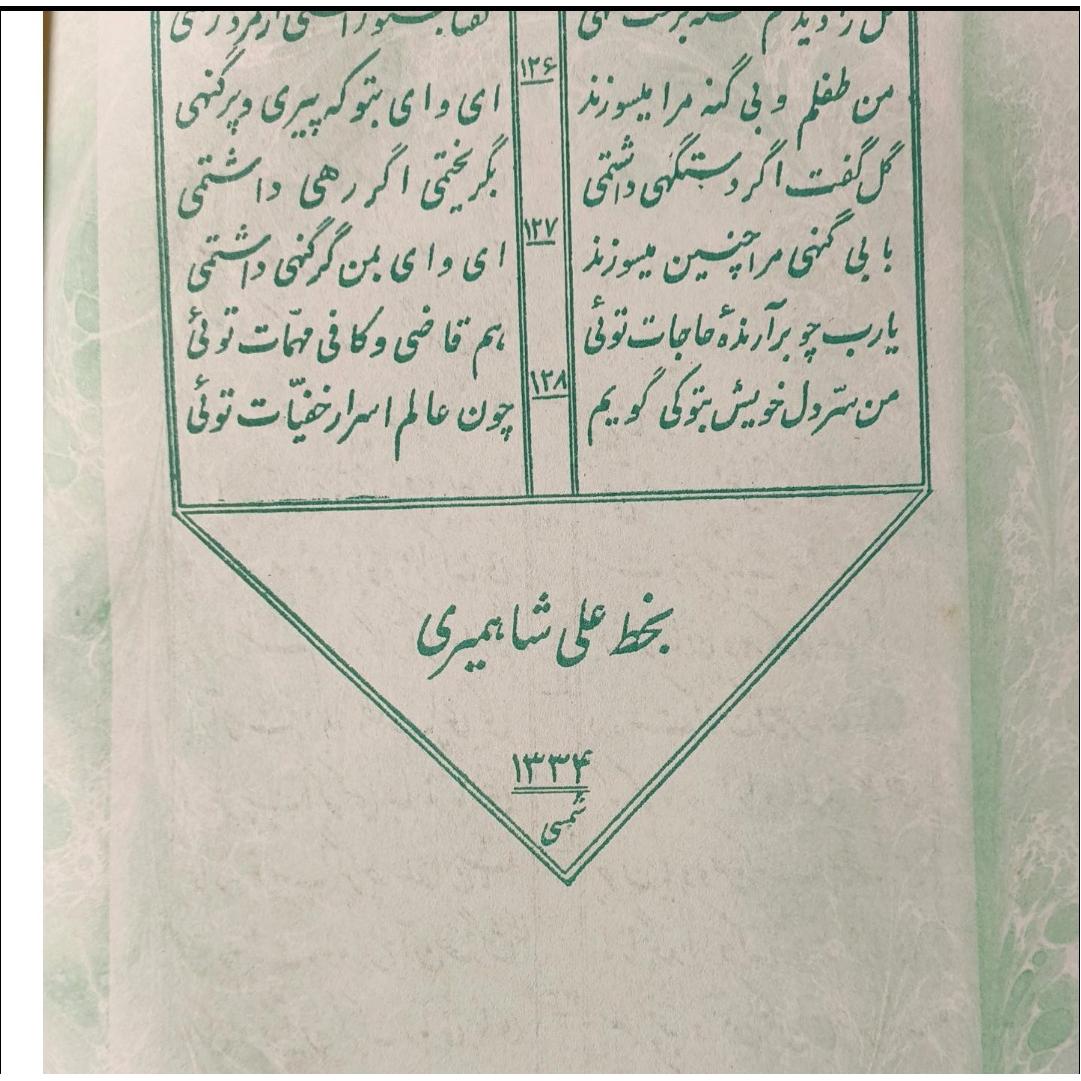 من طفلم و بی گنه مرا میسوزند ۱۲۶ ای وای بتو که پیری و پرگنهی
گل گفت اگر دستگهی داشتمی بگریختمی اگر رهی داشتمی
با بی گنهی مرا چنین میسوزند ۱۲۷ ای وای بمن گر گنهی داشتمی
یارب چو برآرندهٔ حاجات توئی هم قاضی و کافی مهمّات توئی
من سرّ دل خویش بتو کی گویم ۱۲۸ چون عالم اسرار خفیّات توئی
بخط علی شاهمیری
۱۳۳۴
شمسی